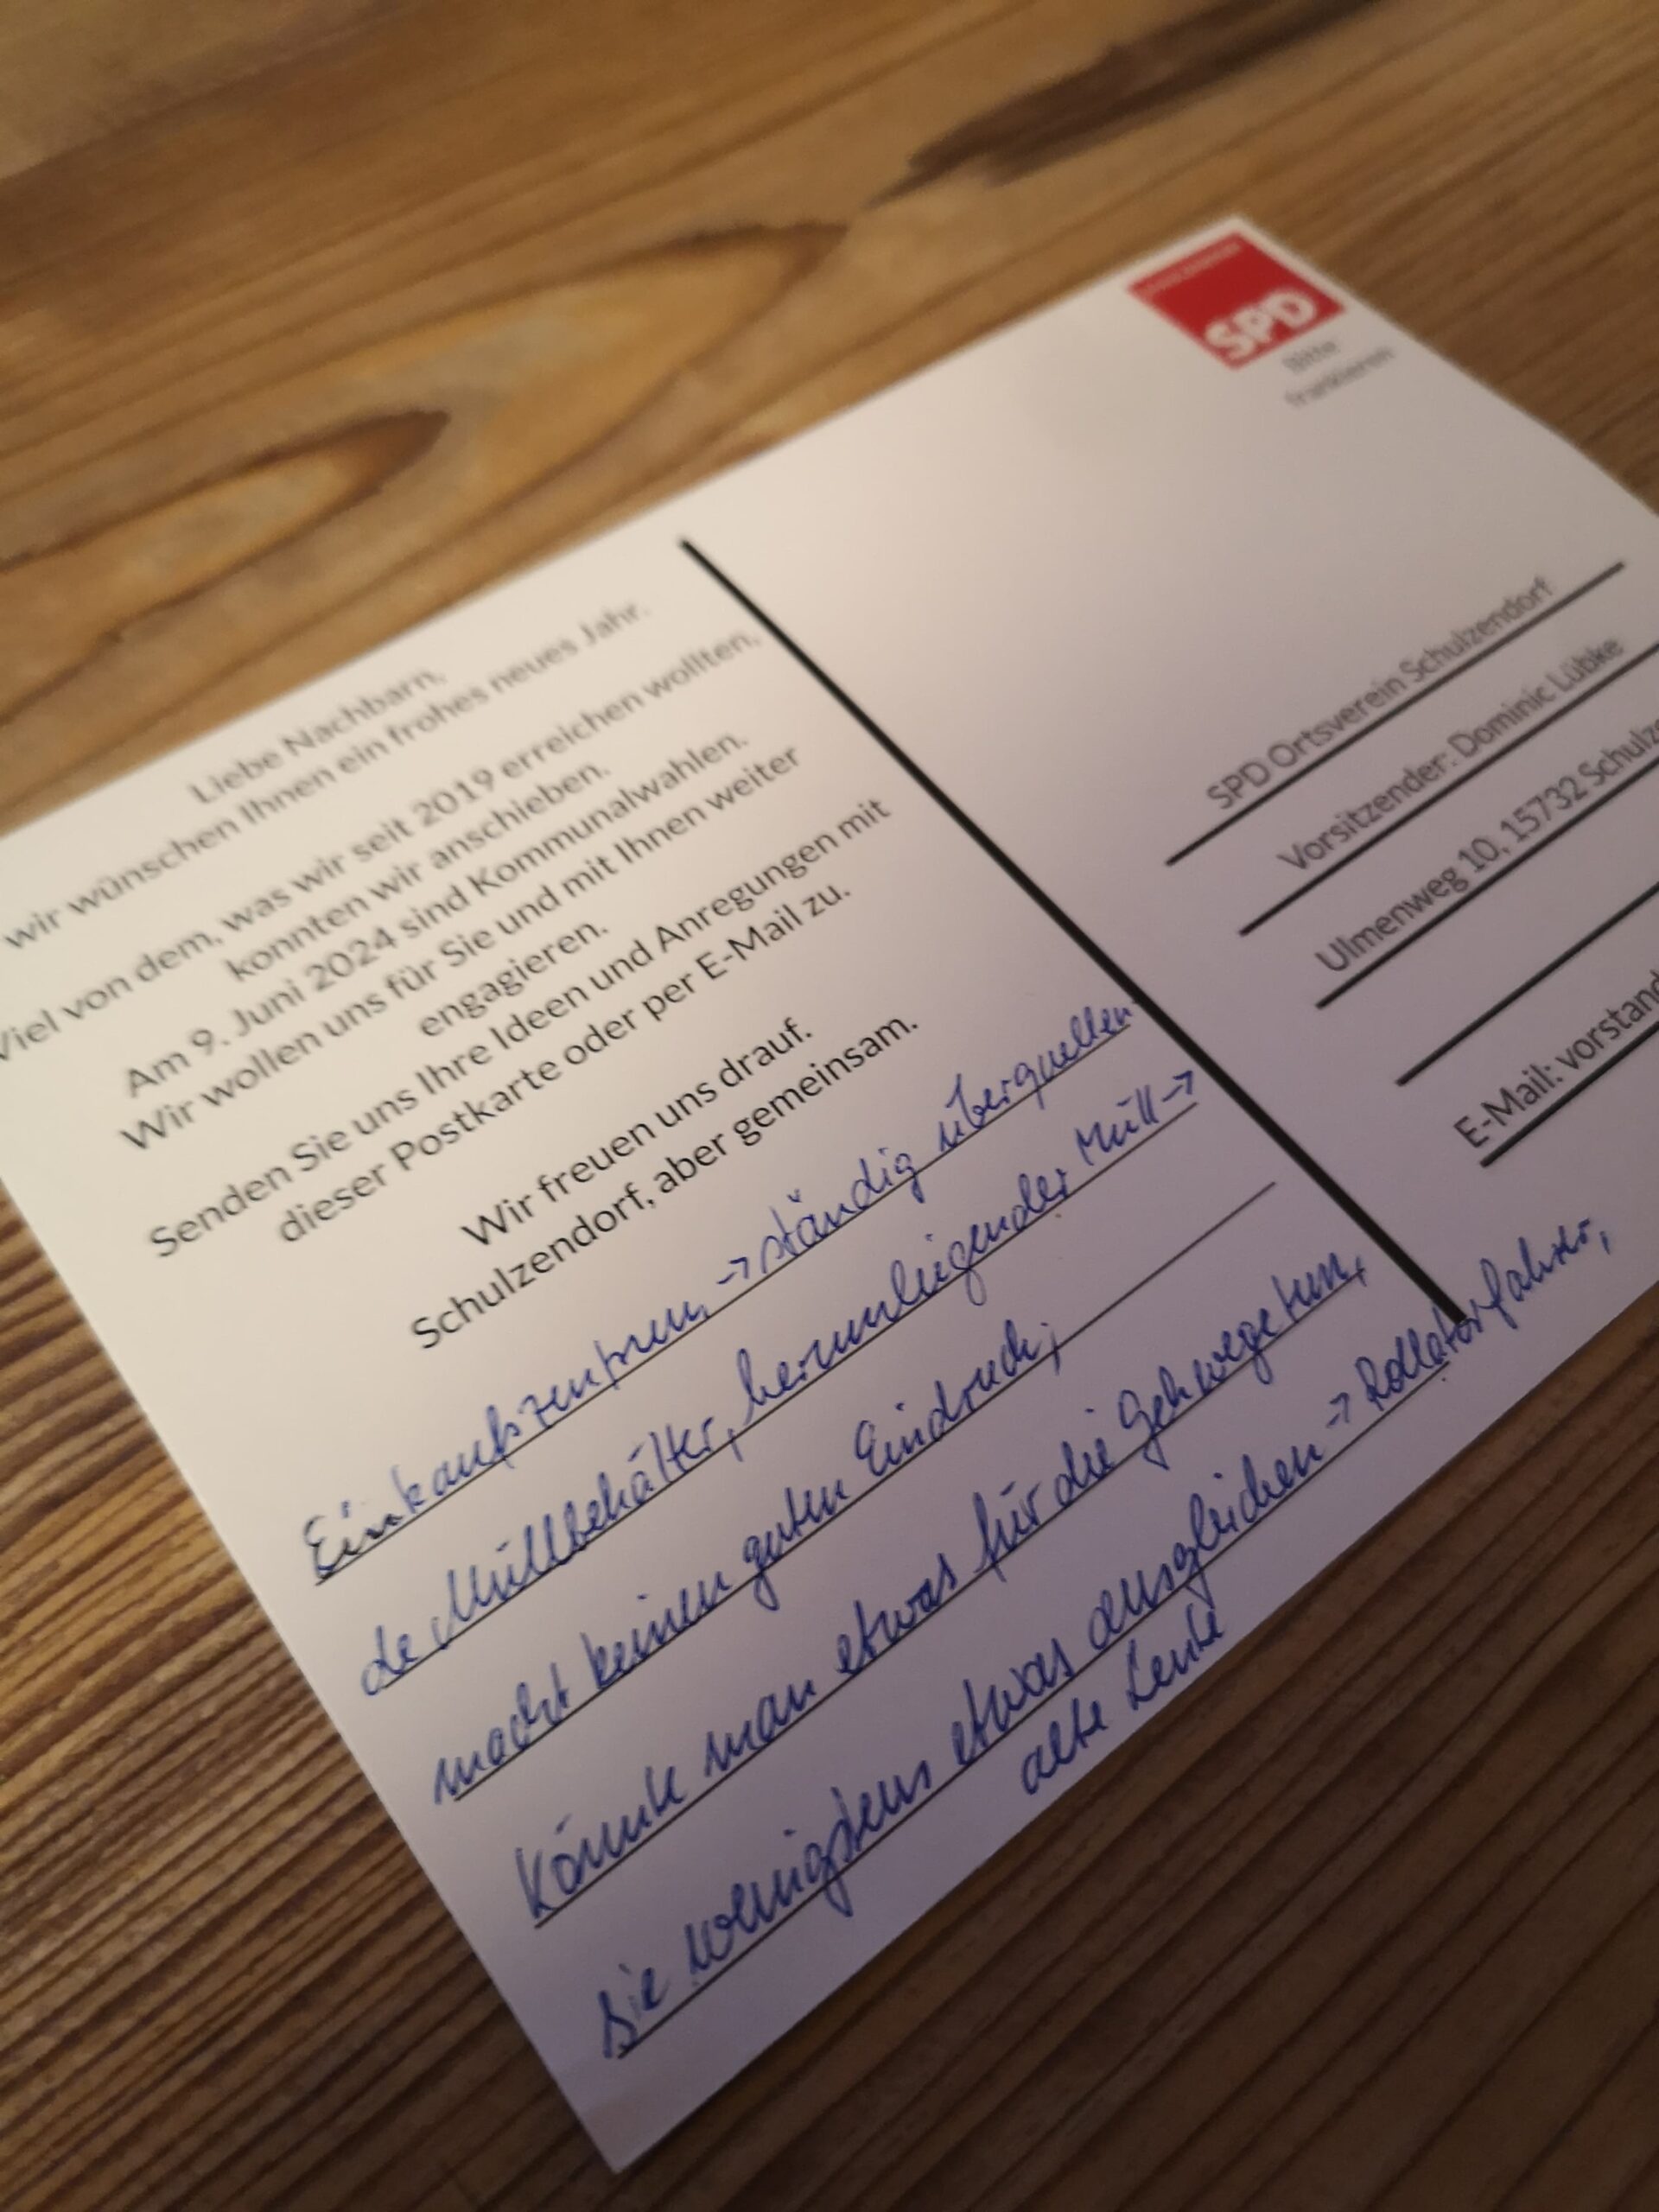 Liebe Nachbarn,
wir wünschen Ihnen ein frohes neues Jahr.
Viel von dem, was wir seit 2019 erreichen wollten,
konnten wir anschieben.
Am 9. Juni 2024 sind Kommunalwahlen.
Wir wollen uns für Sie und mit Ihnen weiter
engagieren.
Senden Sie uns Ihre Ideen und Anregungen mit
dieser Postkarte oder per E-Mail zu.
Wir freuen uns drauf.
Schulzendorf, aber gemeinsam.
Einkaufszentrum, → ständig überquellen
de Müllbehälter, herumliegender Müll →
macht keinen guten Eindruck;
Könnte man etwas für die Gehwege tun,
sie wenigstens etwas ausgleichen → Rollatorfahrer,
alte Leute
SPD
Bitte
frankieren
SPD Ortsverein Schulzendorf
Vorsitzender: Dominic Lübke
Ulmenweg 10, 15732 Schulze
E-Mail: vorstand